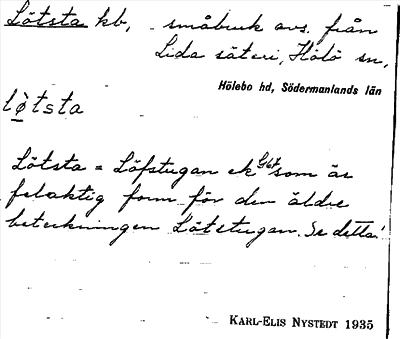 Lötsta kb, småbruk avs. från
Lida säteri, Hölö sn,
Hölebo hd, Södermanlands län
lø̀tsta
Lötsta = Löfstugan ek Gbt som är
felaktig form för den äldre
beteckningen Lötstugan. Se detta!
KARL-ELIS NYSTEDT 1935